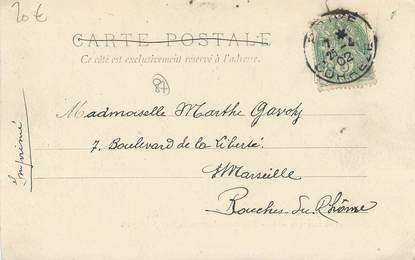 20 €
CARTE POSTALE
Ce côté est exclusivement réservé à l'adresse.
BRIVE
CORRÈZE
02
87
Mademoiselle Marthe Gavoty
7. Boulevard de la Liberté.
Marseille
Bouches-du-Rhône
Imprimé